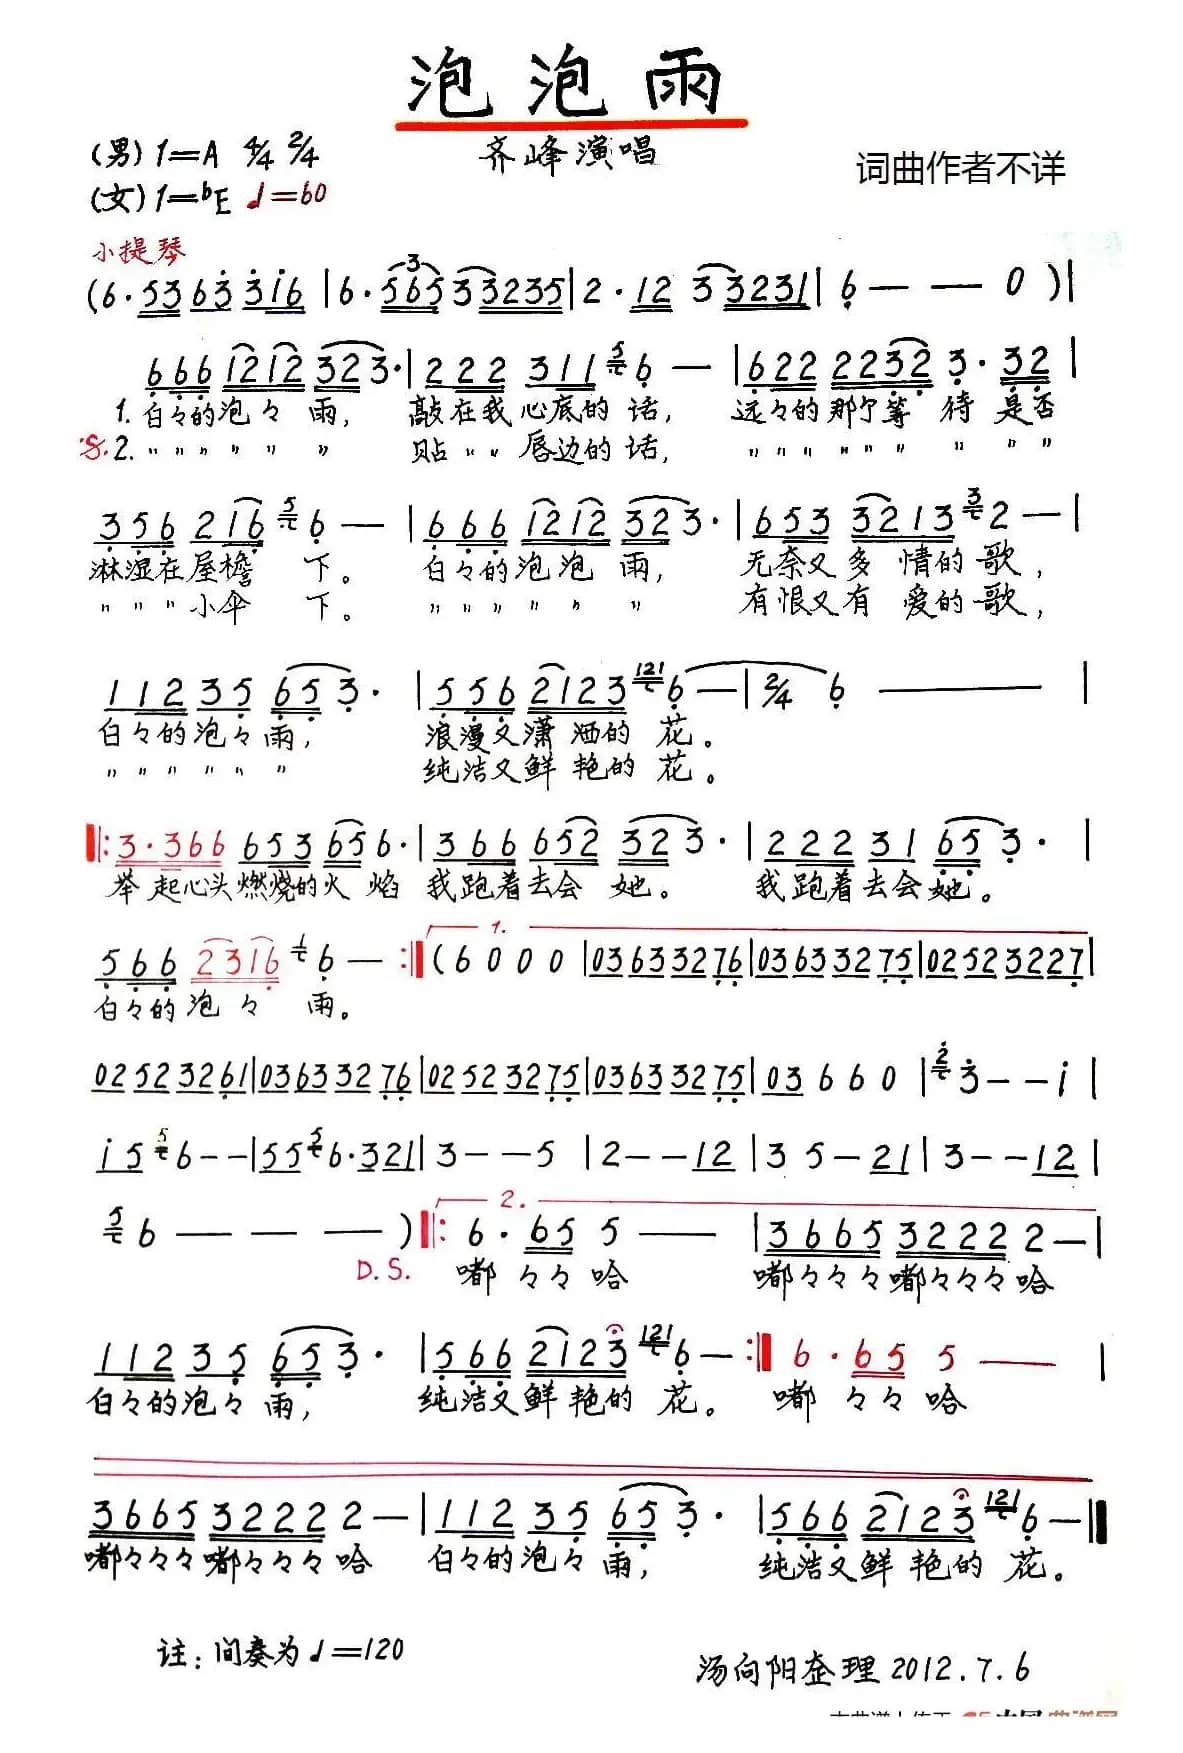 泡泡雨
(男)1=A 4/4 2/4
齐峰演唱
词曲作者不详
(女)1=bE ♩=60
小提琴
(6·53 63 316|6·565 33235|2·12 33231|6——0)|
666 1212 323·|222 2 311 5 6—|622 2232 3·32|
1.白々的泡々雨, 敲在我心底的话, 远々的那个等待是否
𝄋2. 〃〃〃〃〃〃 贴〃〃唇边的话, 〃〃〃〃〃〃〃〃〃
356 216 5 6—|666 1212 323·|653 3213 3 2—|
淋湿在屋檐下。 白々的泡泡雨, 无奈又多情的歌,
〃〃〃小伞下。 〃〃〃〃〃〃 有恨又有爱的歌,
112 35 653·|556 2123 121 6—|2/4 6——|
白々的泡々雨, 浪漫又潇洒的花。
〃〃〃〃〃〃 纯洁又鲜艳的花。
‖:3·366 653 656·|366 652 323·|222 31 653·|
举起心头燃烧的火焰 我跑着去会她。 我跑着去会她。
1.
566 2316 1 6—:‖(6000|03633276|03633275|02523227|
白々的泡々雨。
02523261|03633276|02523275|03633275|03660|2 3--i|
i5 5 6--|55 5 6·321|3--5|2--12|35-21|3--12|
2.
5 6———)‖:6·65 5—|3665 3222 2—|
D.S. 嘟々々哈 嘟々々々嘟々々々哈
112 35 653·|566 2123 121 6—:‖6·65 5—|
白々的泡々雨, 纯洁又鲜艳的花。 嘟々々哈
3665 3222 2—|112 35 653·|566 2123 121 6—‖
嘟々々々嘟々々々哈 白々的泡々雨, 纯洁又鲜艳的花。
注:间奏为♩=120
汤向阳整理2012.7.6